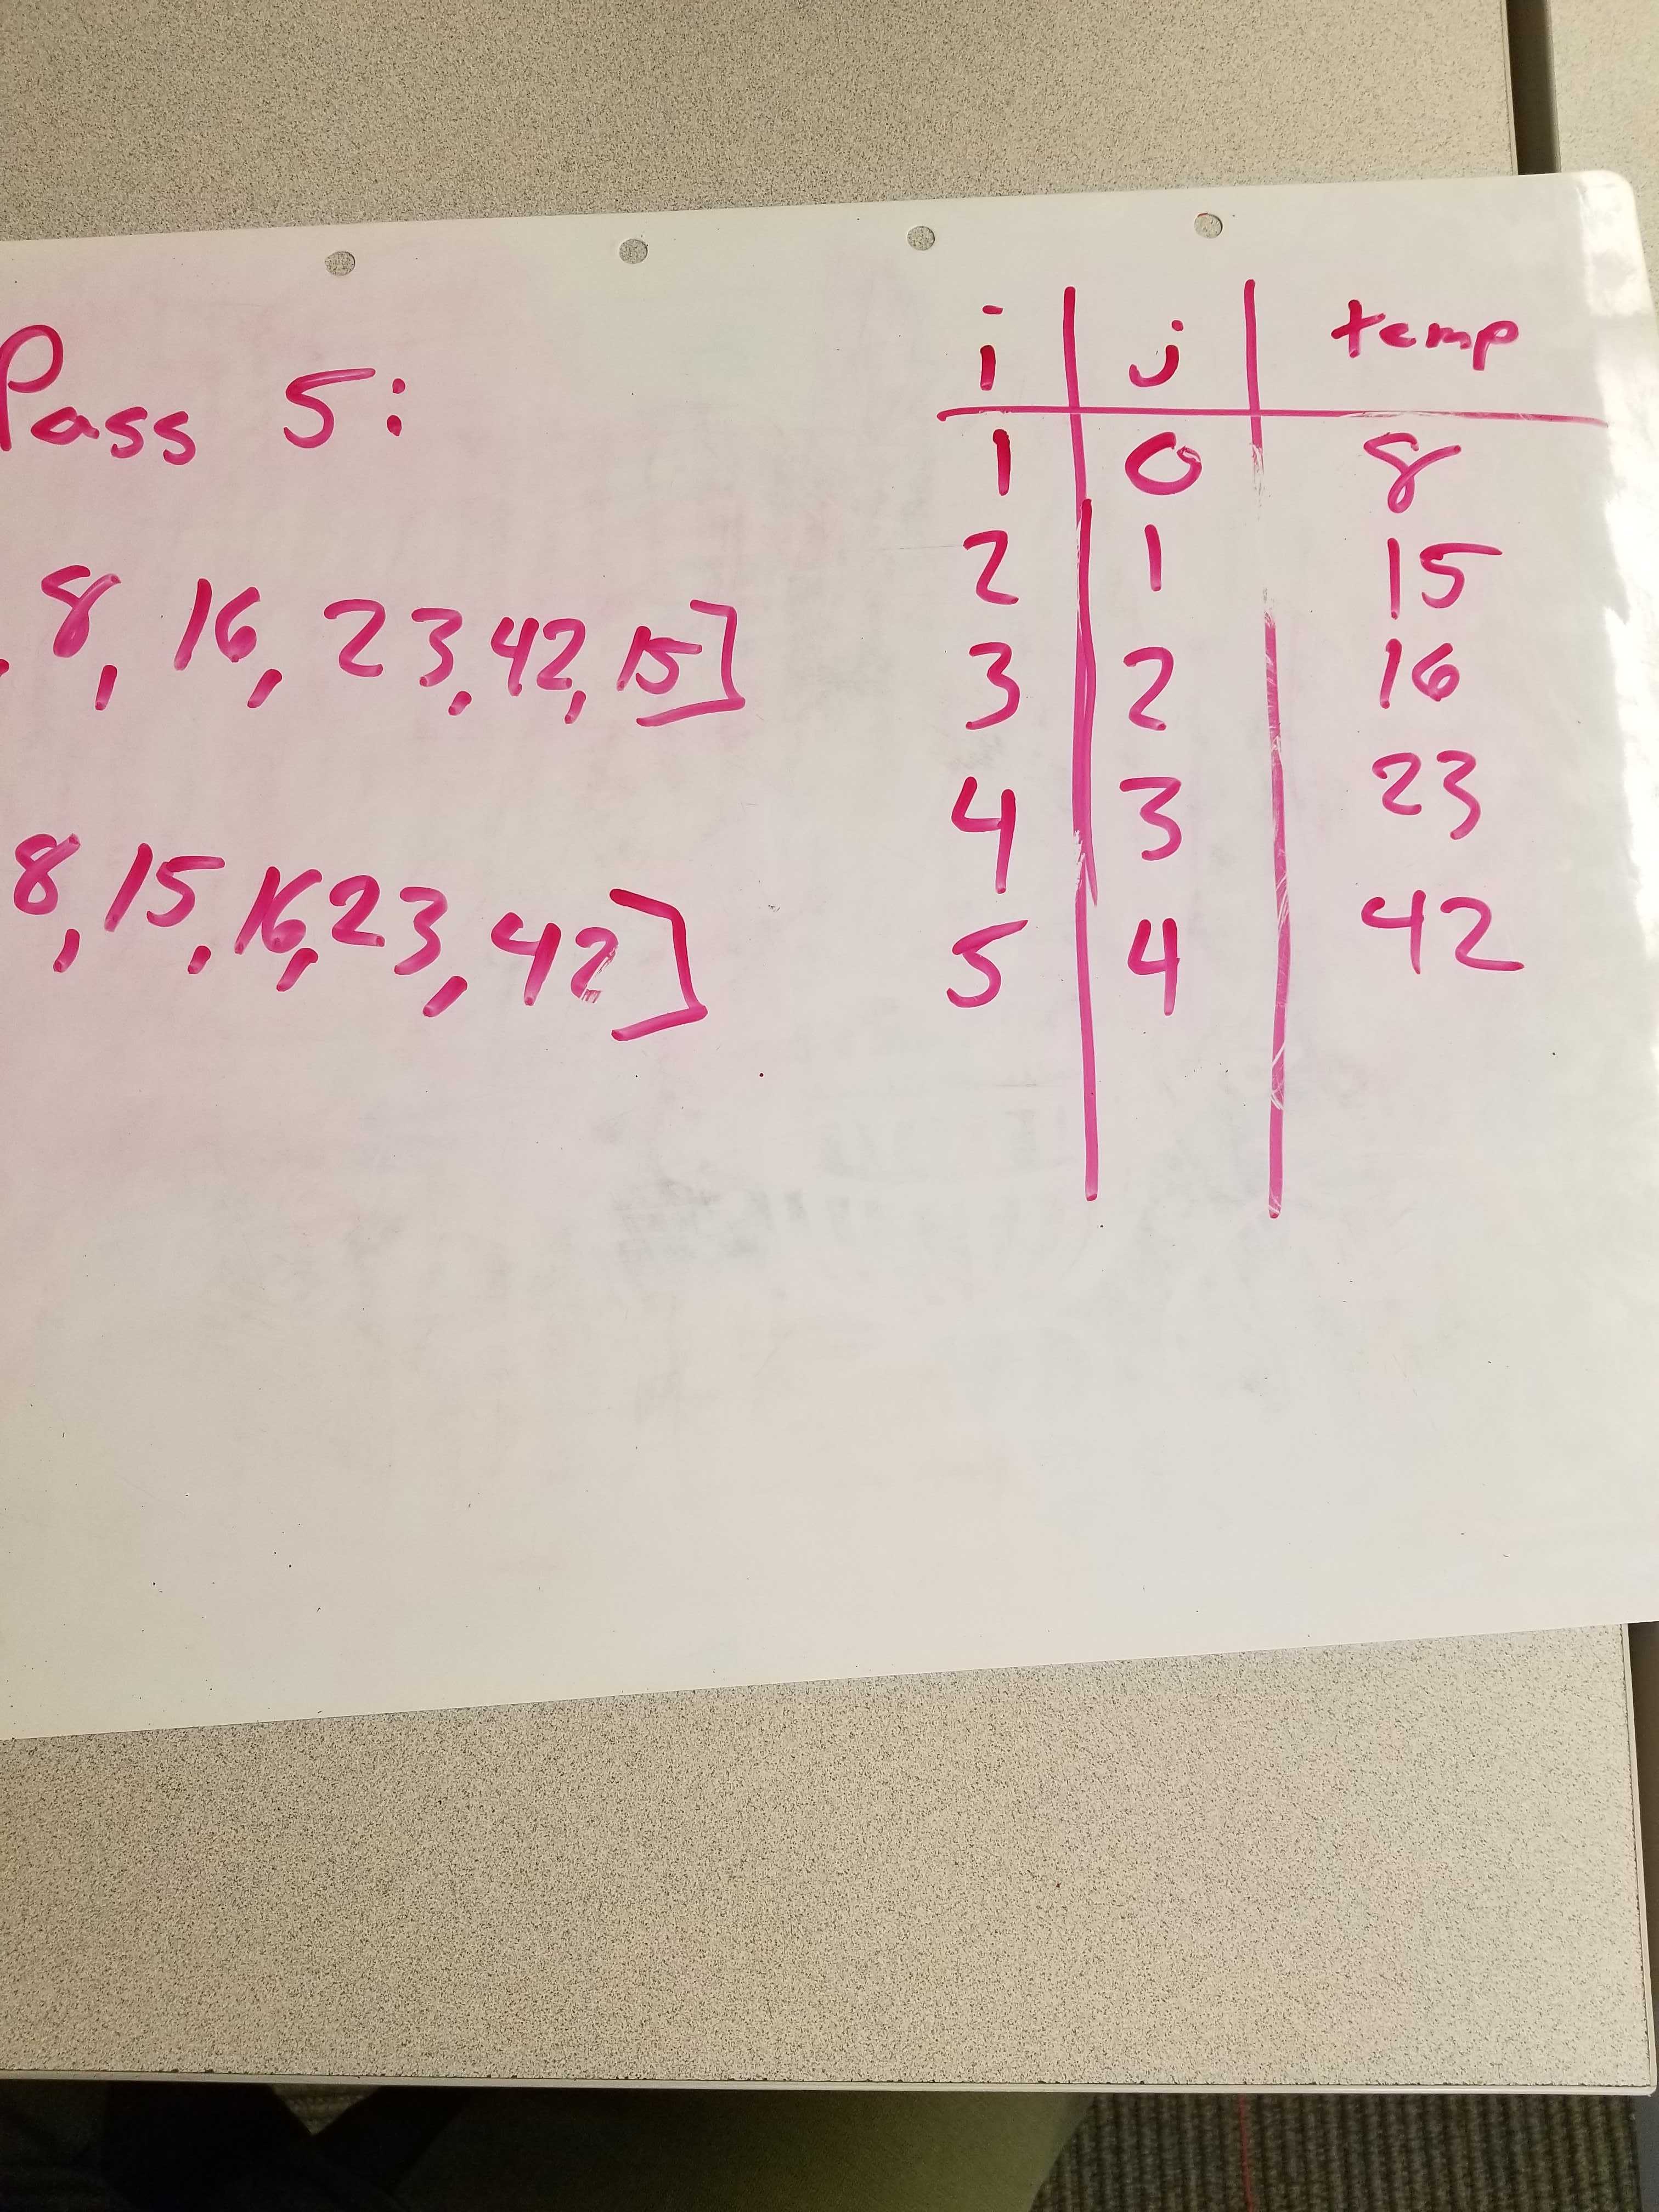 Pass 5:
, 8, 16, 23, 42, 15]
8, 15, 16, 23, 42]
i j temp
1 0 8
2 1 15
3 2 16
4 3 23
5 4 42